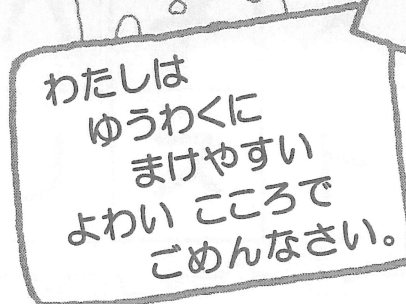 わたしは
ゆうわくに
まけやすい
よわい こころで
ごめんなさい。